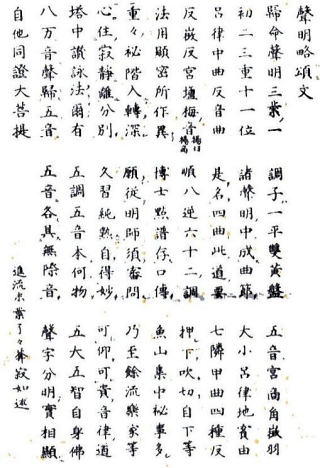 聲明略頌文
歸命聲明三業一 調子一平雙黃盤 五音宮商角徵羽
初二三重十一位 諸聲明中成曲節 大小呂律地實由
呂律中曲反音曲 是名四曲此道要 七隣甲曲四種反
反徵反宮塩梅音 順八逆六十二調 押下吹切自下等
法用顯密所作異 博士點譜仔口傳 魚山集中秘事多
重々秘階入轉深 願從明師須審問 乃至餘流樂家等
心住寂靜離分別 久習純熟自得妙 可仰可貴音律道
塔中讚詠法爾有 五調五音本何物 五大五智自身佛
八万音聲歸五音 五音各具無際音 聲字分明實相顯
自他同證大菩提
進流末葉了々 寂如述